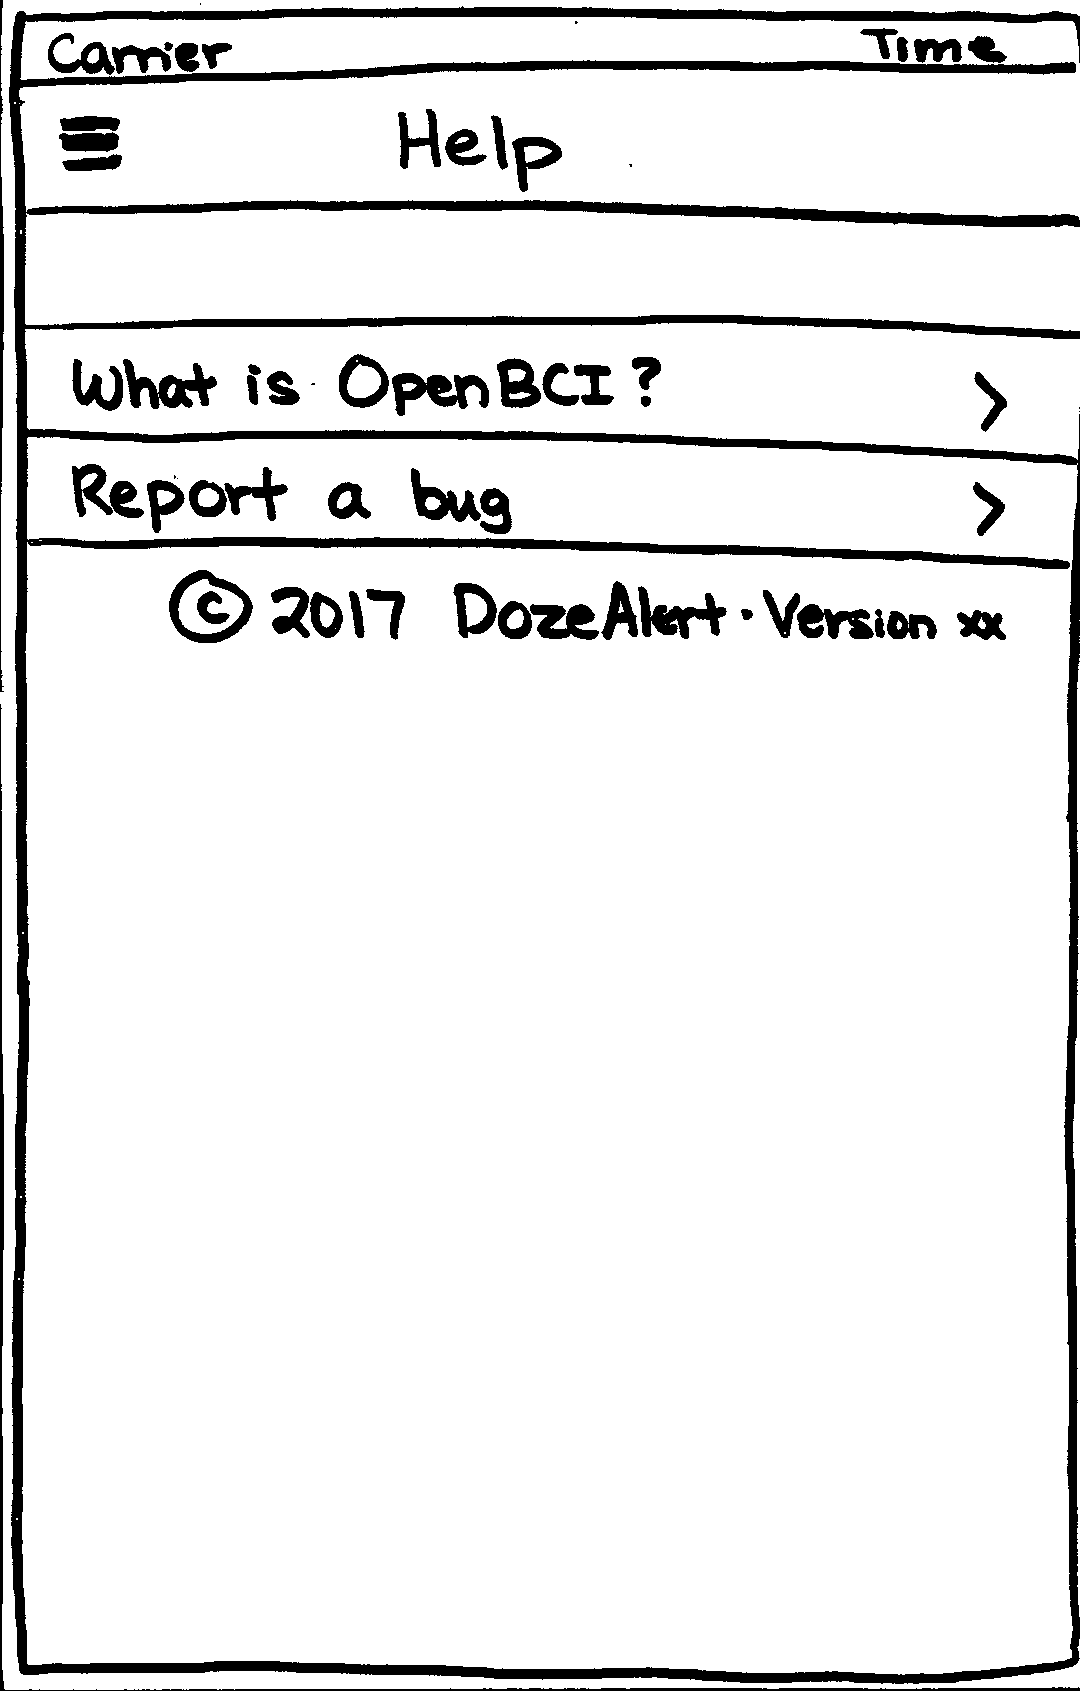 Carrier Time
Help
What is OpenBCI?
Report a bug
© 2017 DozeAlert · Version xx